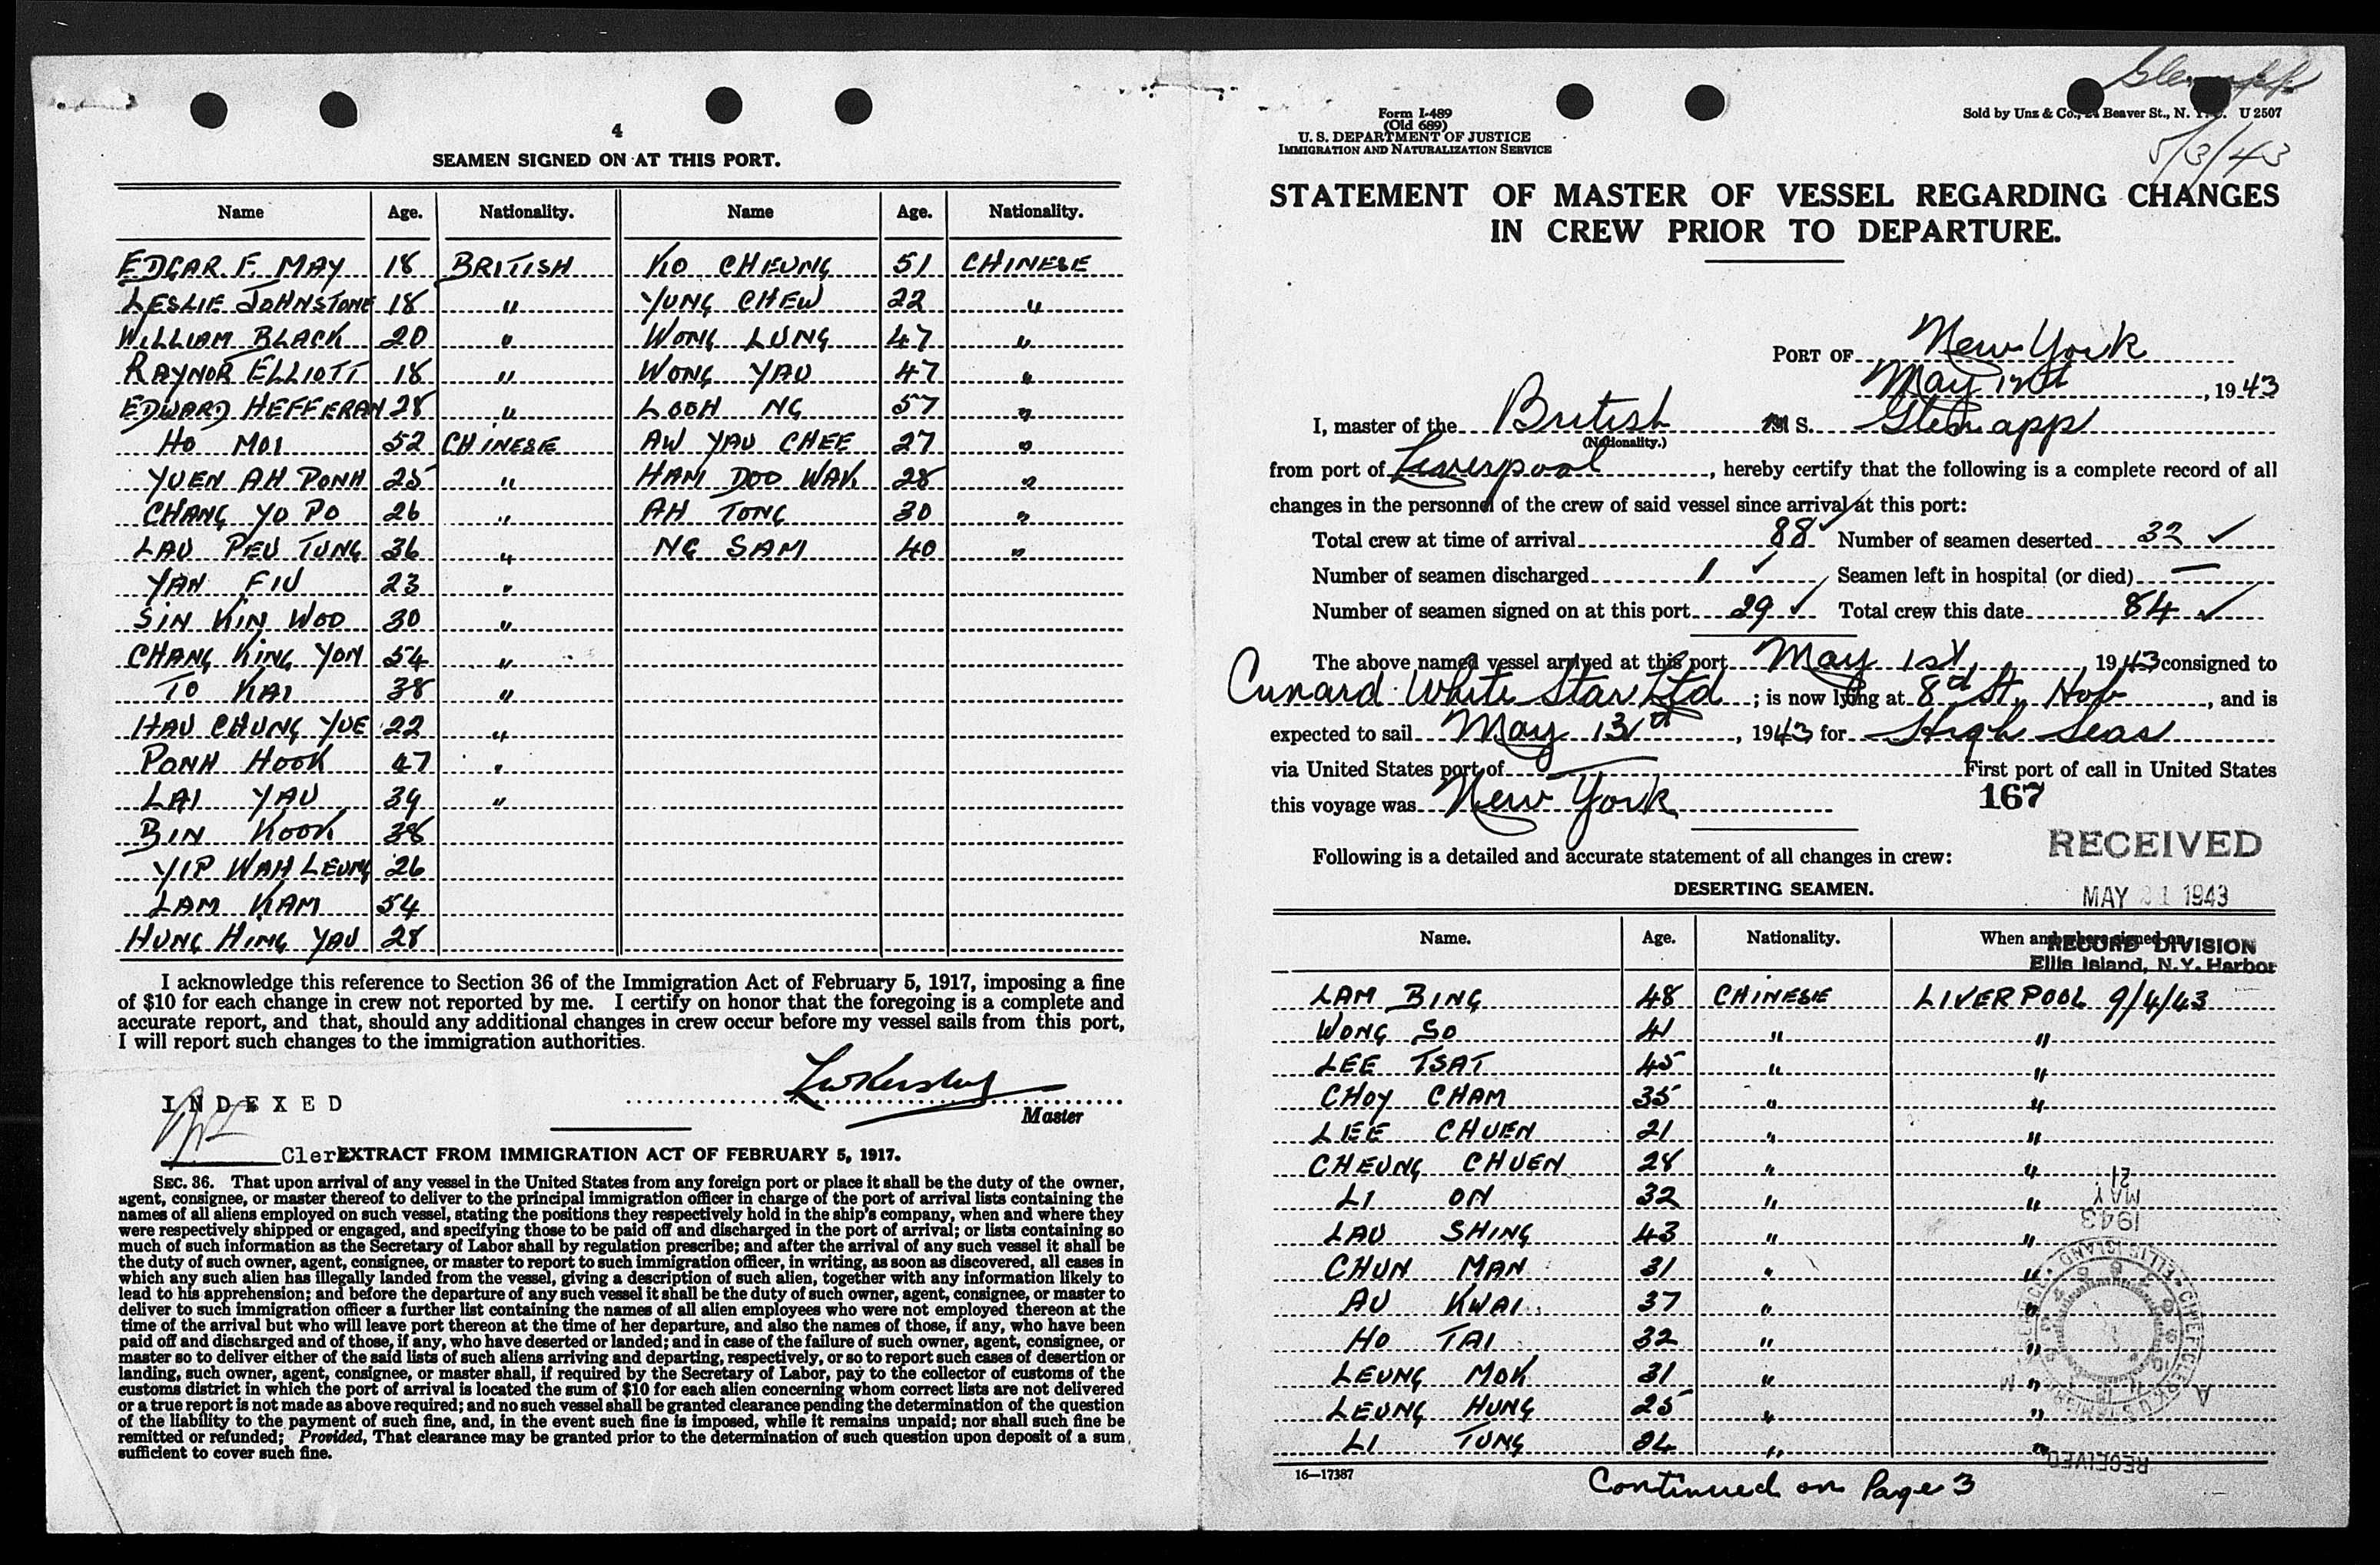 4
SEAMEN SIGNED ON AT THIS PORT.
Name Age. Nationality. Name Age. Nationality.
EDGAR F. MAY 18 BRITISH KO CHEUNG 51 CHINESE
LESLIE JOHNSTONE 18 " YUNG CHEW 22 "
WILLIAM BLACK 20 " WONG LUNG 47 "
RAYNOR ELLIOTT 18 " WONG YAU 47 "
EDWARD HEFFERAN 28 " LOOH NG 57 "
HO MOI 52 CHINESE AW YAU CHEE 27 "
YUEN AH PONH 25 " HAM DOO WAK 28 "
CHANG YO PO 26 " AH TONG 30 "
LAU PEU TUNG 36 " NG SAM 40 "
YAN FIU 23 "
SIN KIN WOO 30 "
CHANG KING YON 54 "
TO KAI 38 "
HAU CHUNG YUE 22 "
PONH HOOK 47 "
LAI YAU 39 "
BIN KOOK 38
YIP WAH LEUNG 26
LAM KAM 54
HUNG HING YAU 28
I acknowledge this reference to Section 36 of the Immigration Act of February 5, 1917, imposing a fine
of $10 for each change in crew not reported by me. I certify on honor that the foregoing is a complete and
accurate report, and that, should any additional changes in crew occur before my vessel sails from this port,
I will report such changes to the immigration authorities.
INDEXED
Master
Clerk
EXTRACT FROM IMMIGRATION ACT OF FEBRUARY 5, 1917.
SEC. 36. That upon arrival of any vessel in the United States from any foreign port or place it shall be the duty of the owner,
agent, consignee, or master thereof to deliver to the principal immigration officer in charge of the port of arrival lists containing the
names of all aliens employed on such vessel, stating the positions they respectively hold in the ship's company, when and where they
were respectively shipped or engaged, and specifying those to be paid off and discharged in the port of arrival; or lists containing so
much of such information as the Secretary of Labor shall by regulation prescribe; and after the arrival of any such vessel it shall be
the duty of such owner, agent, consignee, or master to report to such immigration officer, in writing, as soon as discovered, all cases in
which any such alien has illegally landed from the vessel, giving a description of such alien, together with any information likely to
lead to his apprehension; and before the departure of any such vessel it shall be the duty of such owner, agent, consignee, or master to
deliver to such immigration officer a further list containing the names of all alien employees who were not employed thereon at the
time of the arrival but who will leave port thereon at the time of her departure, and also the names of those, if any, who have been
paid off and discharged and of those, if any, who have deserted or landed; and in case of the failure of such owner, agent, consignee, or
master so to deliver either of the said lists of such aliens arriving and departing, respectively, or so to report such cases of desertion or
landing, such owner, agent, consignee, or master shall, if required by the Secretary of Labor, pay to the collector of customs of the
customs district in which the port of arrival is located the sum of $10 for each alien concerning whom correct lists are not delivered
or a true report is not made as above required; and no such vessel shall be granted clearance pending the determination of the question
of the liability to the payment of such fine, and, in the event such fine is imposed, while it remains unpaid; nor shall such fine be
remitted or refunded; Provided, That clearance may be granted prior to the determination of such question upon deposit of a sum
sufficient to cover such fine.
Glenapp
5/3/43
Form I-489
(Old 689)
U. S. DEPARTMENT OF JUSTICE
IMMIGRATION AND NATURALIZATION SERVICE
Sold by Unz & Co., Beaver St., N. Y. U 2507
STATEMENT OF MASTER OF VESSEL REGARDING CHANGES
IN CREW PRIOR TO DEPARTURE.
PORT OF New York
May 12th, 1943
I, master of the British S. Glenapp
(Nationality.)
from port of Liverpool, hereby certify that the following is a complete record of all
changes in the personnel of the crew of said vessel since arrival at this port:
Total crew at time of arrival 88 ✓ Number of seamen deserted 32 ✓
Number of seamen discharged 1 ✓ Seamen left in hospital (or died) —
Number of seamen signed on at this port 29 ✓ Total crew this date 84 ✓
The above named vessel arrived at this port May 1st, 1943 consigned to
Cunard White Star Ltd; is now lying at 8th St. Hob, and is
expected to sail May 13th, 1943, for High Seas
via United States port of — First port of call in United States
this voyage was New York
167
Following is a detailed and accurate statement of all changes in crew:
RECEIVED
MAY 21 1943
RECORD DIVISION
Ellis Island, N.Y. Harbor
DESERTING SEAMEN.
Name. Age. Nationality. When and where signed on
LAM BING 48 CHINESE LIVERPOOL 9/4/43
WONG SO 41 " "
LEE TSAT 45 " "
CHOY CHAM 35 " "
LEE CHUEN 21 " "
CHEUNG CHUEN 28 " "
LI ON 32 " "
LAU SHING 43 " "
CHUN MAN 31 " "
AU KWAI 37 " "
HO TAI 32 " "
LEUNG MOK 31 " "
LEUNG HUNG 25 " "
LI TUNG 24 " "
1943
MAY
21
RECEIVED
16—17387
Continued on Page 3